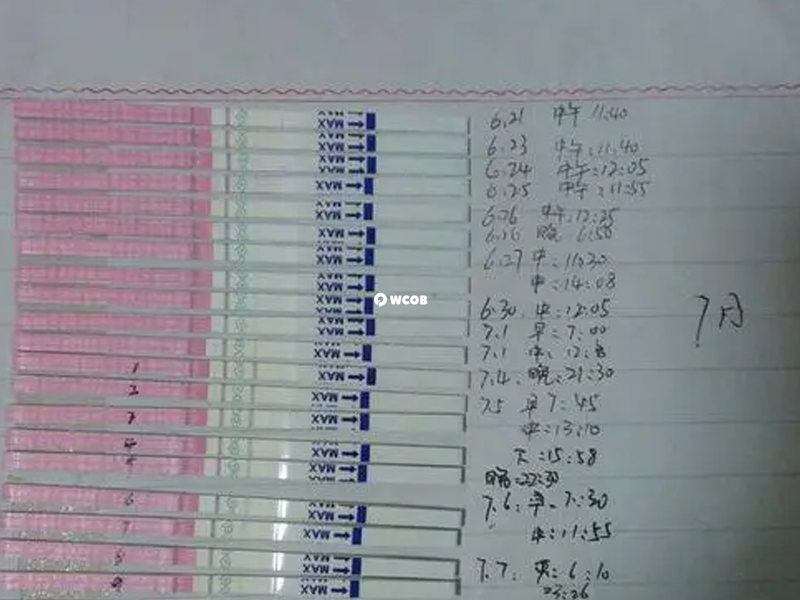 6.21 中午 11:40
6.23 中午:11:40
6.24 中午:12:05
6.25 中午:11:55
6.26 中午:12:25
6.26 晚 6:50
6.27 中:11:30
中:14:08
6.30. 中:12:05
7.1 早:7:00
7.1 中:12:
7.4. 晚:21:30
7.5 早7:45
中:13:10
下:15:58
晚:22:30
7.6: 早.7:30
中:11:55
7.7: 6:10
23:26
7月
MAX
MAX
MAX
MAX
MAX
MAX
MAX
MAX
MAX
MAX
MAX
MAX
MAX
MAX
MAX
MAX
MAX
MAX
MAX
MAX
1
2
3
4
6
7
8
9
WCOB